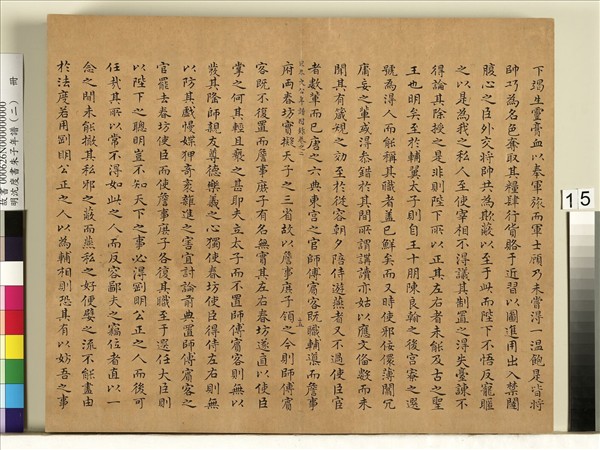 下竭生靈膏血以奉軍旅而軍士顧乃未嘗得一溫飽是皆將
帥巧為名色奪取其糧肆行貨賂于近習以圖進用出入禁闥
腹心之臣外交將帥共為欺蔽以至于此而陛下不悟反寵暱
之以是為我之私人至使宰相不得議其制置之得失臺諫不
得論其除授之是非則陛下所以正其左右者未能及古之聖
王也明矣至於輔翼太子則自王十朋陳良翰之後宮寮之選
號為得人而能稱其職者蓋已鮮矣而又時使邪佞儇薄闒冗
庸妄之輩或得叅錯於其間所謂講讀亦姑以應文俻數而未
聞其有箴規之効至於從容朝夕陪侍遊燕者又不過使臣宦
者數輩而已唐之六典東宮之官師傅賓客既職輔導而詹事
五
府兩春坊實擬天子之三省故以詹事庶子領之今則師傅賓
客既不復置而詹事庶子有名無實其左右春坊遂直以使臣
掌之何其輕且褻之甚耶夫立太子而不置師傅賓客則無以
發其隆師親友尊德樂義之心獨使春坊使臣得侍左右則無
以防其戲慢媟狎奇衺雜進之害宜討論前典置師傅賓客之
官罷去春坊使臣而使詹事庶子各復其職至于選任大臣則
以陛下之聰明豈不知天下之事必得剛明公正之人而後可
任哉其所以常不得如此之人而反容鄙夫之竊位者直以一
念之間未能撤其私邪之蔽而燕私之好便嬖之流不能盡由
於法度若用剛明公正之人以為輔相則恐其有以妨吾之事
15
故書 000626N000000000
明沈度書朱子年譜(二) 冊